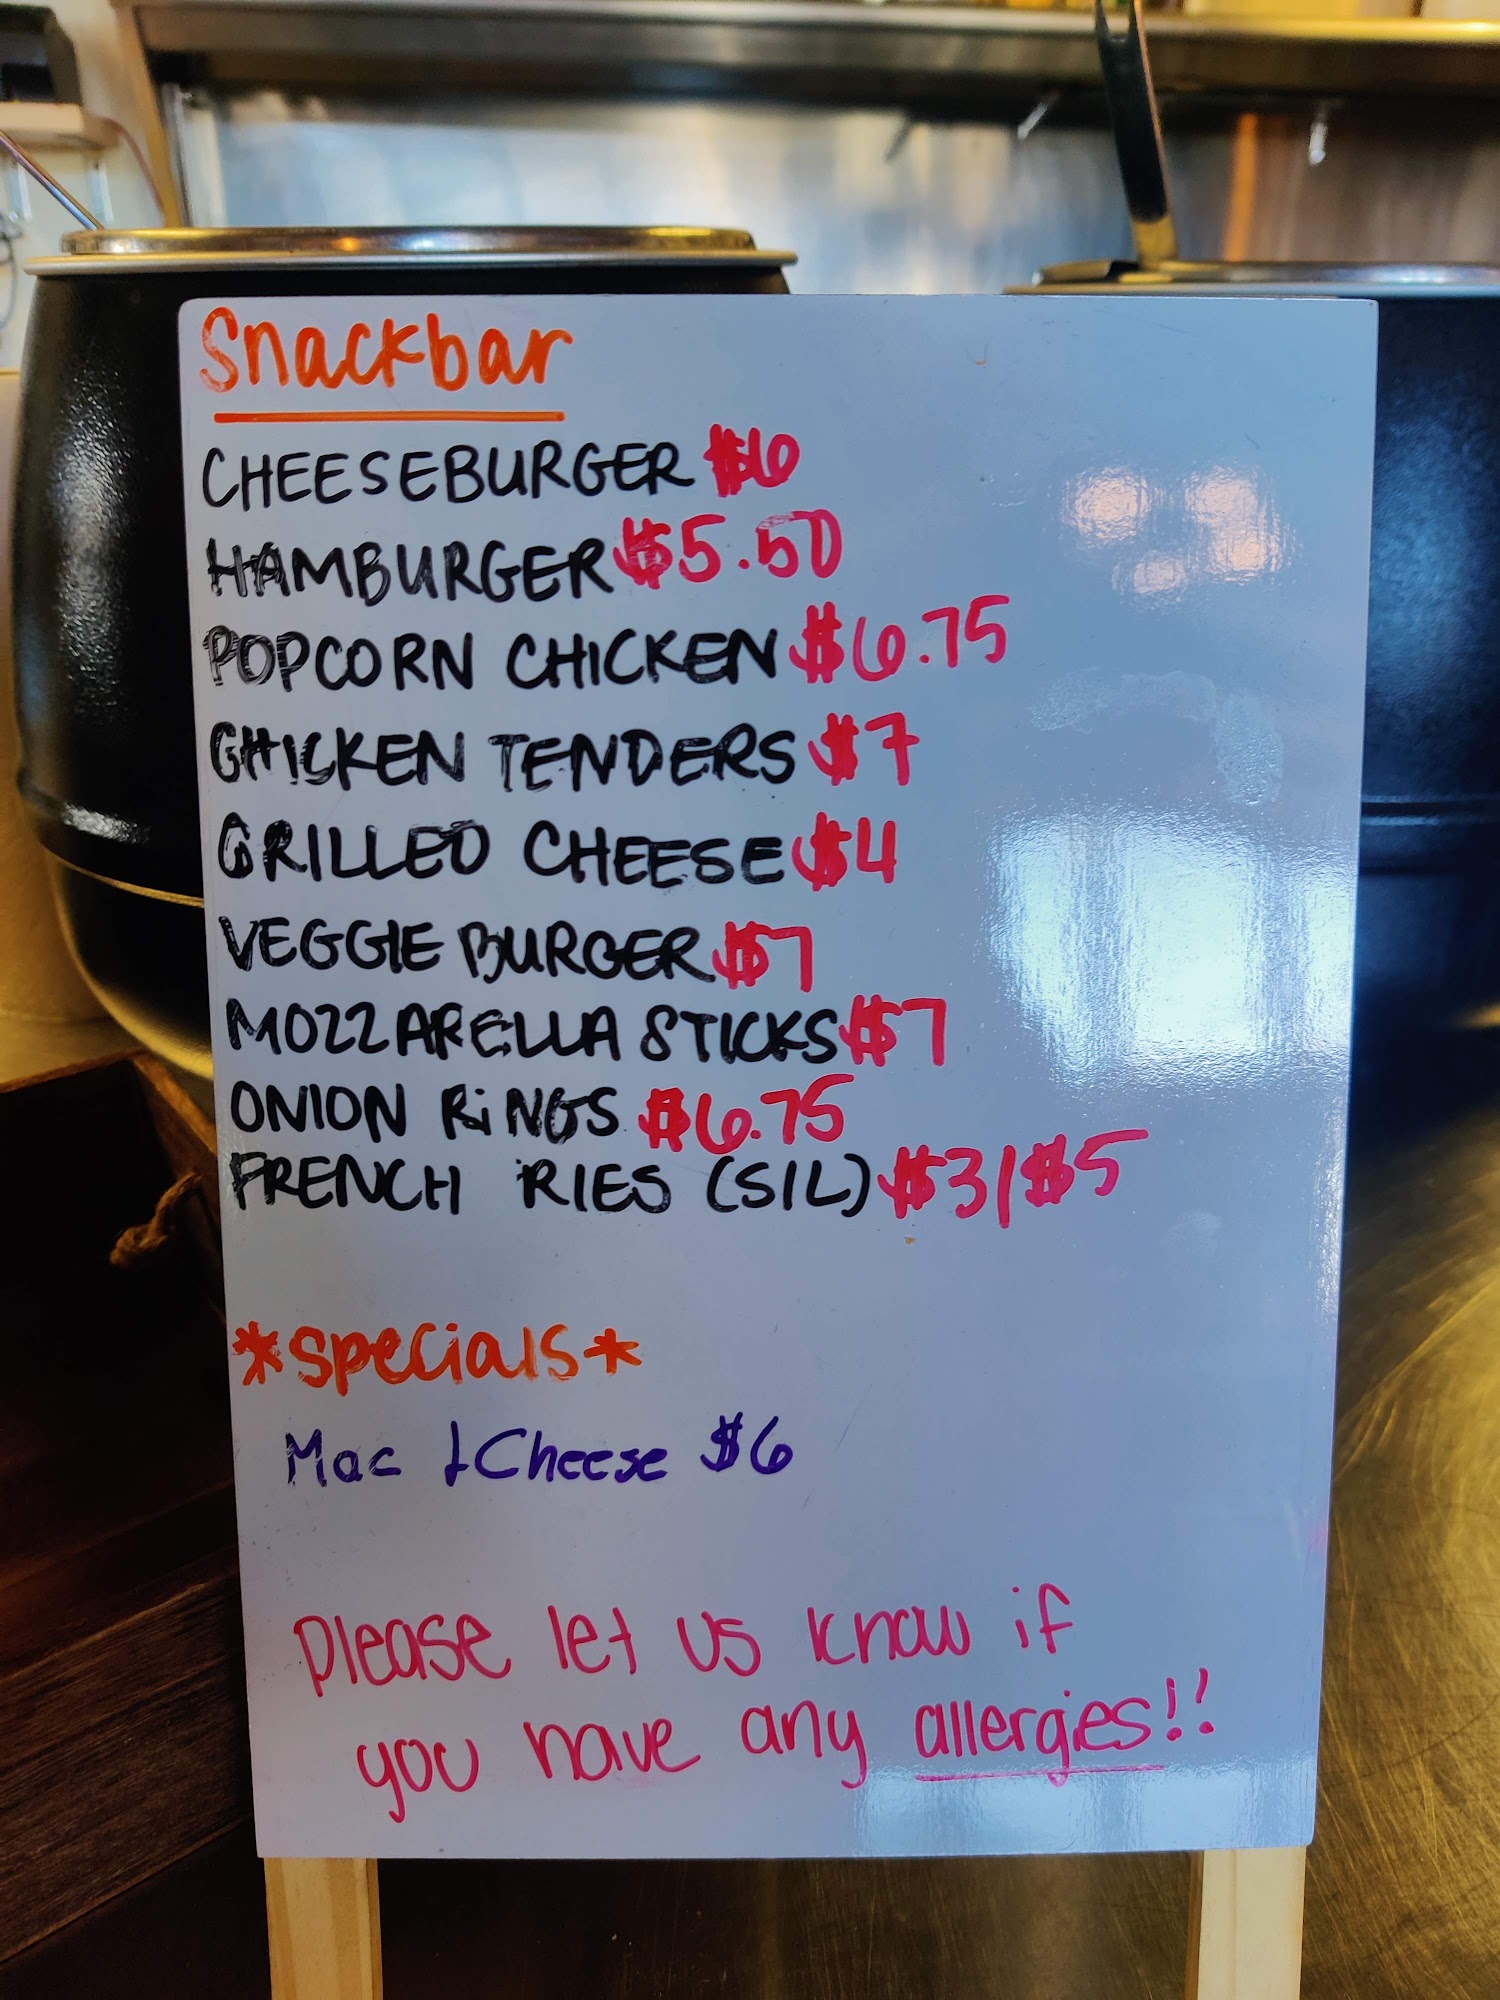 Snackbar
CHEESEBURGER $6
HAMBURGER $5.50
POPCORN CHICKEN $6.75
CHICKEN TENDERS $7
GRILLED CHEESE $4
VEGGIE BURGER $7
MOZZARELLA STICKS $7
ONION RiNGS $6.75
FRENCH RIES (S/L) $3/$5
*specials*
Mac & Cheese $6
Please let us know if
you have any allergies!!